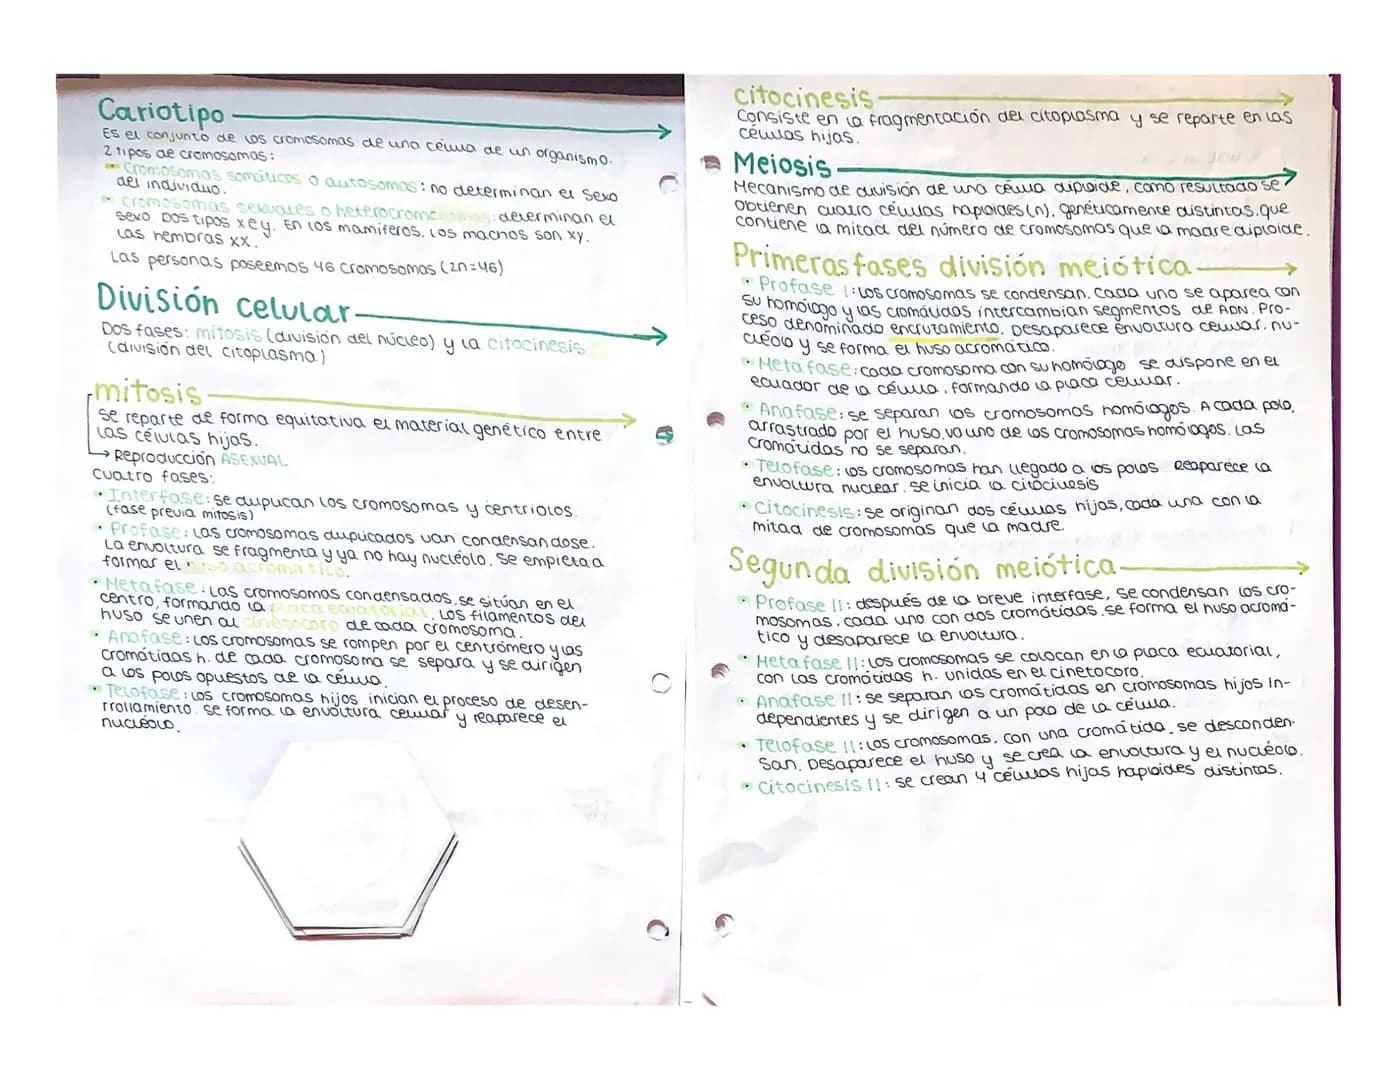 Cariotipo
Es el conjunto de los cromosomas de una célula de un organismo.
2 tipos de cromosomas:
• Cromosomas somáticos o autosomas: no determinan el sexo
del individuo.
• Cromosomas sexuales o heterocromosomas: determinan el
sexo Dos tipos x e y. En los mamiferos, los machos son xy,
las hembras xx.
Las personas poseemos 46 cromosomas (2n=46)
División celular
Dos fases: mitosis (división del núcleo) y la citocinesis
(división del citoplasma)
mitosis
Se reparte de forma equitativa el material genético entre
las células hijas.
→ Reproducción ASEXUAL
Cuatro fases:
• Interfase: se dupucan los cromosomas y centriolos.
(fase previa mitosis)
• Profase: Las cromosomas dupucados van condensandose.
La envoltura se fragmenta y ya no hay nucléolo. Se empieza a
formar el huso acromático.
• Metafase: Las cromosomas condensados, se sitúan en el
centro, formando la placa ecuatorial. Los filamentos del
huso se unen al cinetocoro de cada cromosoma.
• Anafase: Los cromosomas se rompen por el centrómero y las
cromátidas h. de cada cromosoma se separa y se dirigen
a los polos opuestos de la célula.
• Telofase: los cromosomas hijos inician el proceso de desen-
rrollamiento. Se forma la envoltura celular y reaparece el
nucléolo.
citocinesis
Consiste en la fragmentación del citoplasma y se reparte en las
células hijas.
Meiosis
Mecanismo de división de una célula diploide, como resultado se
obtienen cuatro células haploides (n), genéticamente distintas, que
contiene la mitad del número de cromosomas que la madre diploide.
Primeras fases división meiótica
• Profase I: Los cromosomas se condensan. Cada uno se aparea con
su homólogo y las cromátidas intercambian segmentos de ADN. Pro-
ceso denominado encruzamiento. Desaparece envoltura celular, nu-
cléolo y se forma el huso acromático.
• Metafase: cada cromosoma con su homólogo se dispone en el
ecuador de la célula, formando la placa celular.
• Anafase: se separan los cromosomas homólogos. A cada polo,
arrastrado por el huso, va uno de los cromosomas homólogos. Las
cromátidas no se separan.
• Telofase: los cromosomas han llegado a los polos Reaparece la
envoltura nuclear. Se inicia la citocinesis
• Citocinesis: se originan dos células hijas, cada una con la
mitad de cromosomas que la madre.
Segunda división meiótica
• Profase II: después de la breve interfase, se condensan los cro-
mosomas, cada uno con dos cromátidas. Se forma el huso acromá-
tico y desaparece la envoltura.
• Metafase II: Los cromosomas se colocan en la placa ecuatorial,
con las cromátidas h. unidas en el cinetocoro.
• Anafase II: se separan las cromátidas en cromosomas hijos in-
dependientes y se dirigen a un polo de la célula.
• Telofase II: Los cromosomas, con una cromátida, se desconden-
san. Desaparece el huso y se crea la envoltura y el nucléolo.
• Citocinesis II: se crean 4 células hijas haploides distintas.